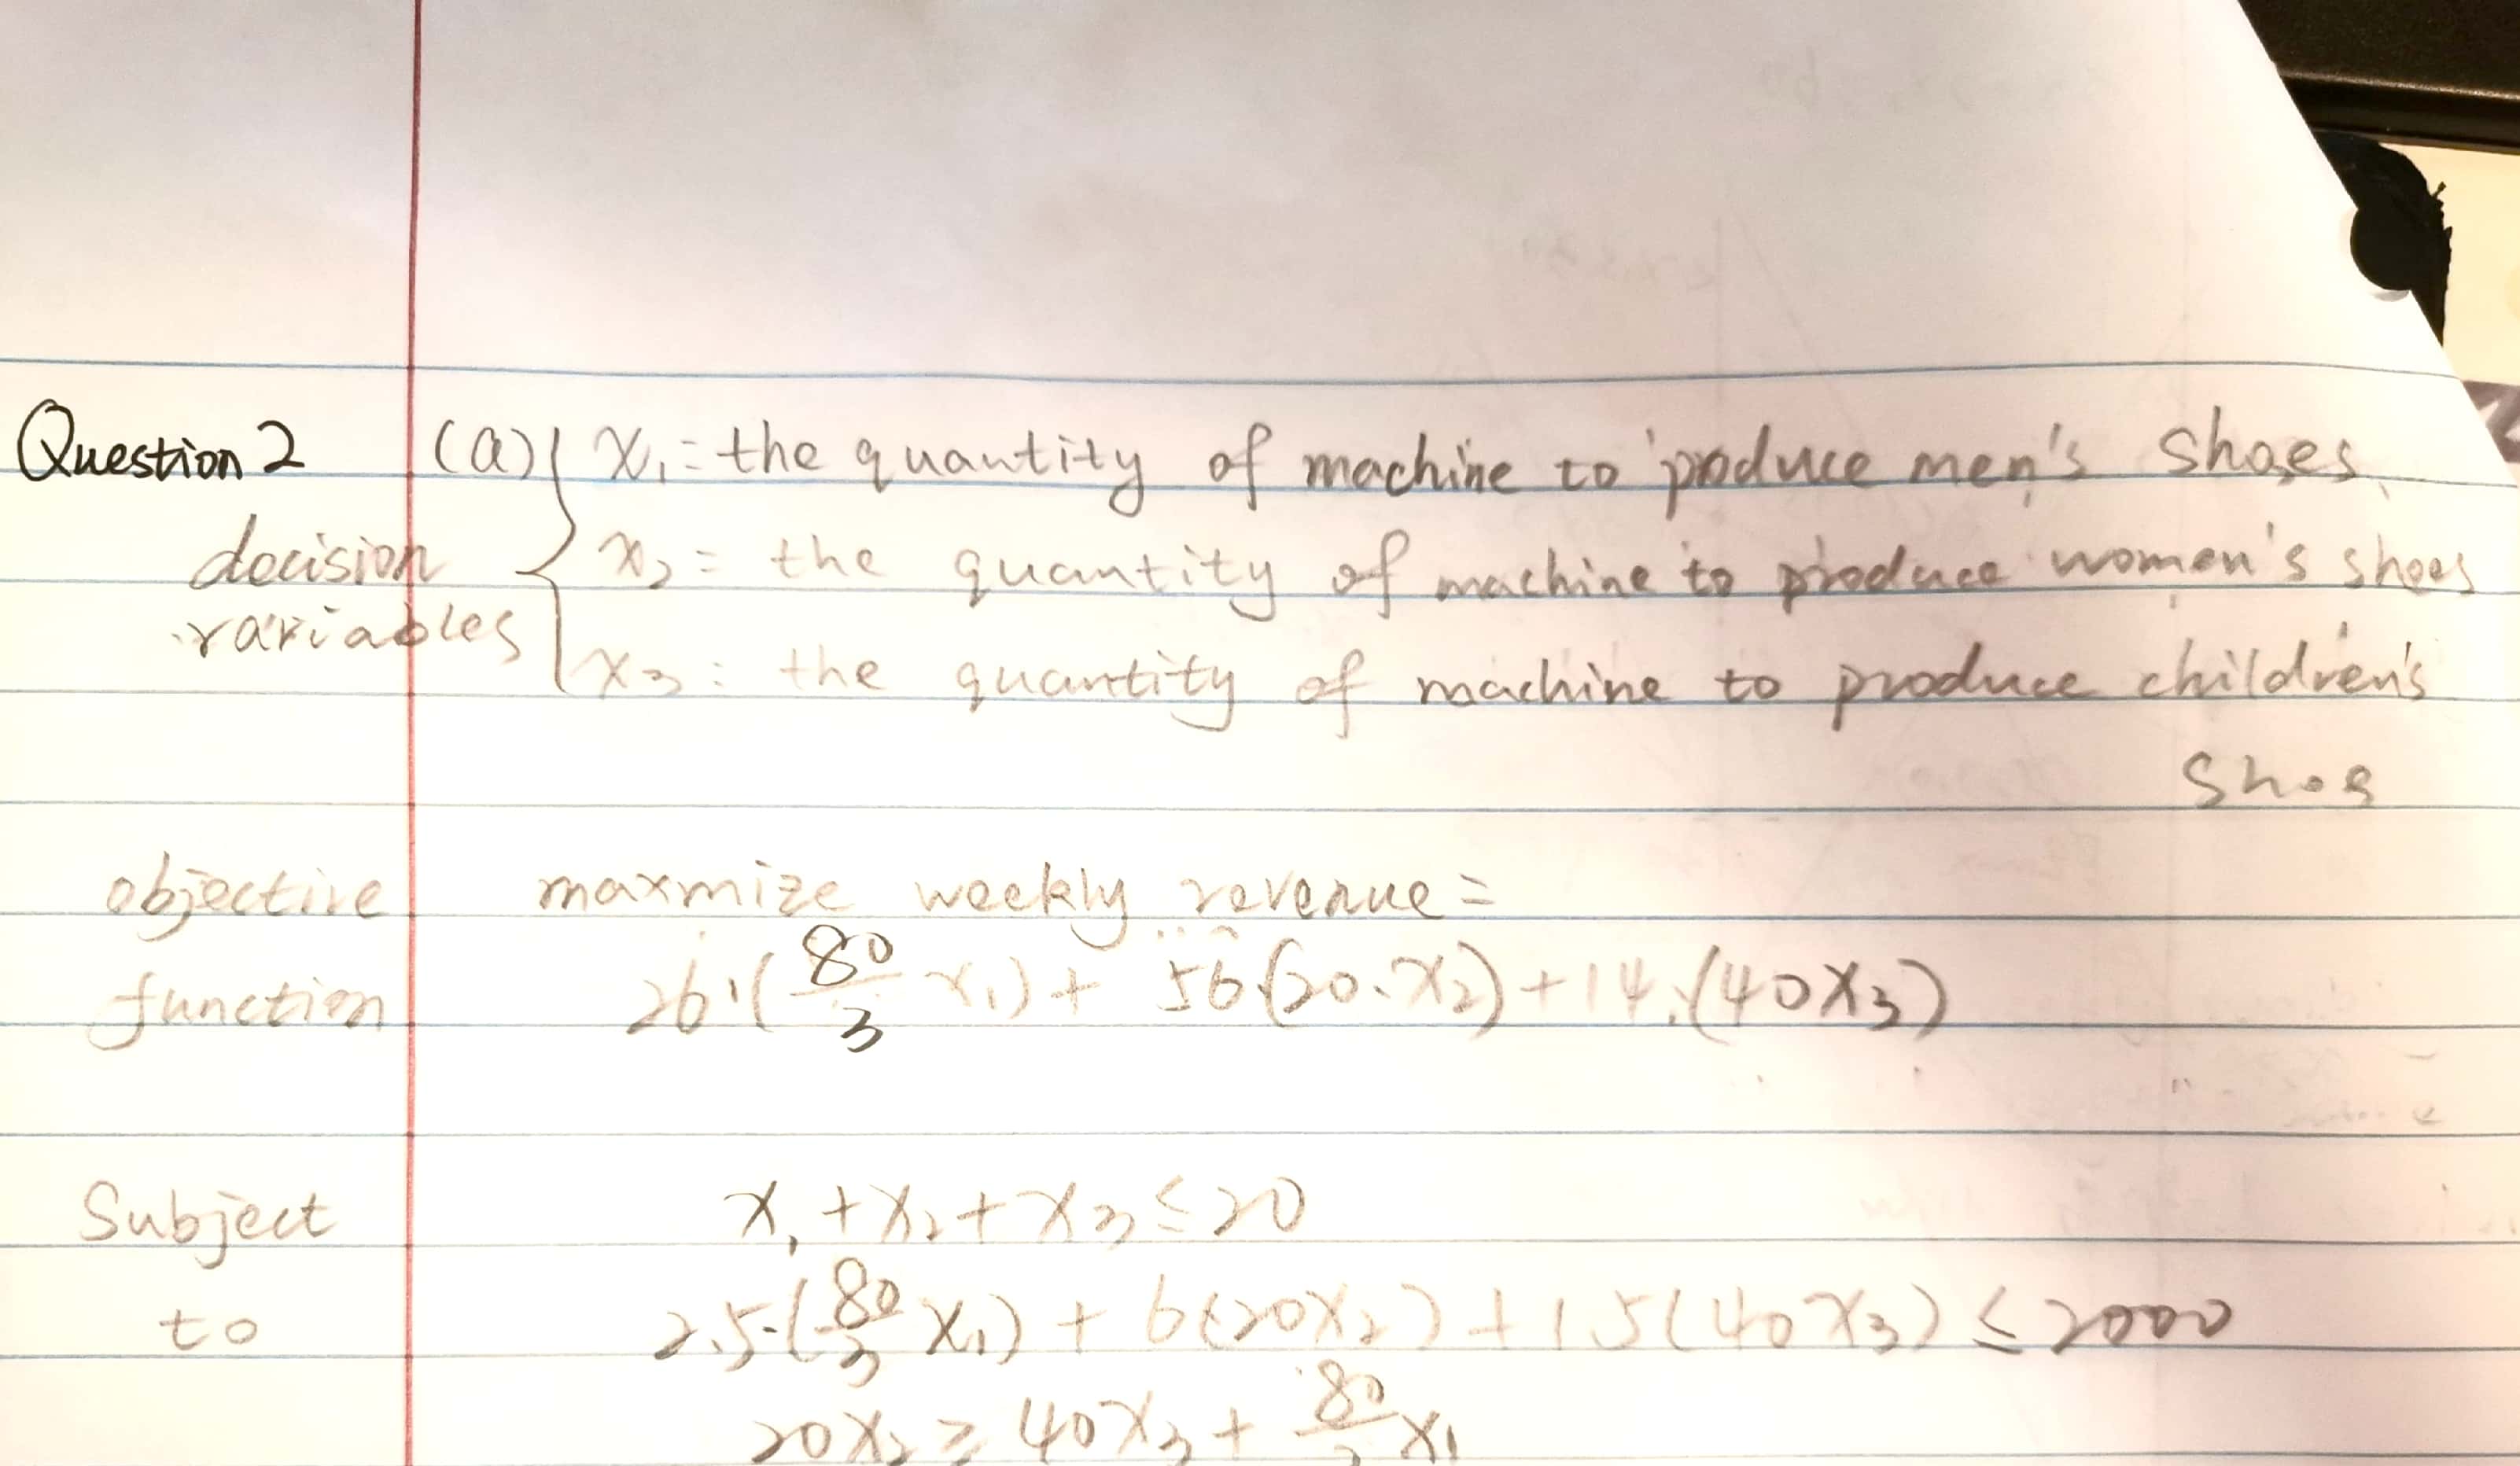 Question 2 (a) x₁ = the quantity of machine to produce men's shoes
decision x₂ = the quantity of machine to produce women's shoes
variables x₃ : the quantity of machine to produce children's
shos
objective maxmize weekly revenue =
function 26·(80/3 x₁) + 56·(20·x₂) + 14·(40x₃)
Subject x₁ + x₂ + x₃ ≤ 20
to 2.5·(80/3 x₁) + 6(20x₂) + 1.5(40x₃) ≤ 2000
20x₂ ≥ 40x₃ + 80/3 x₁